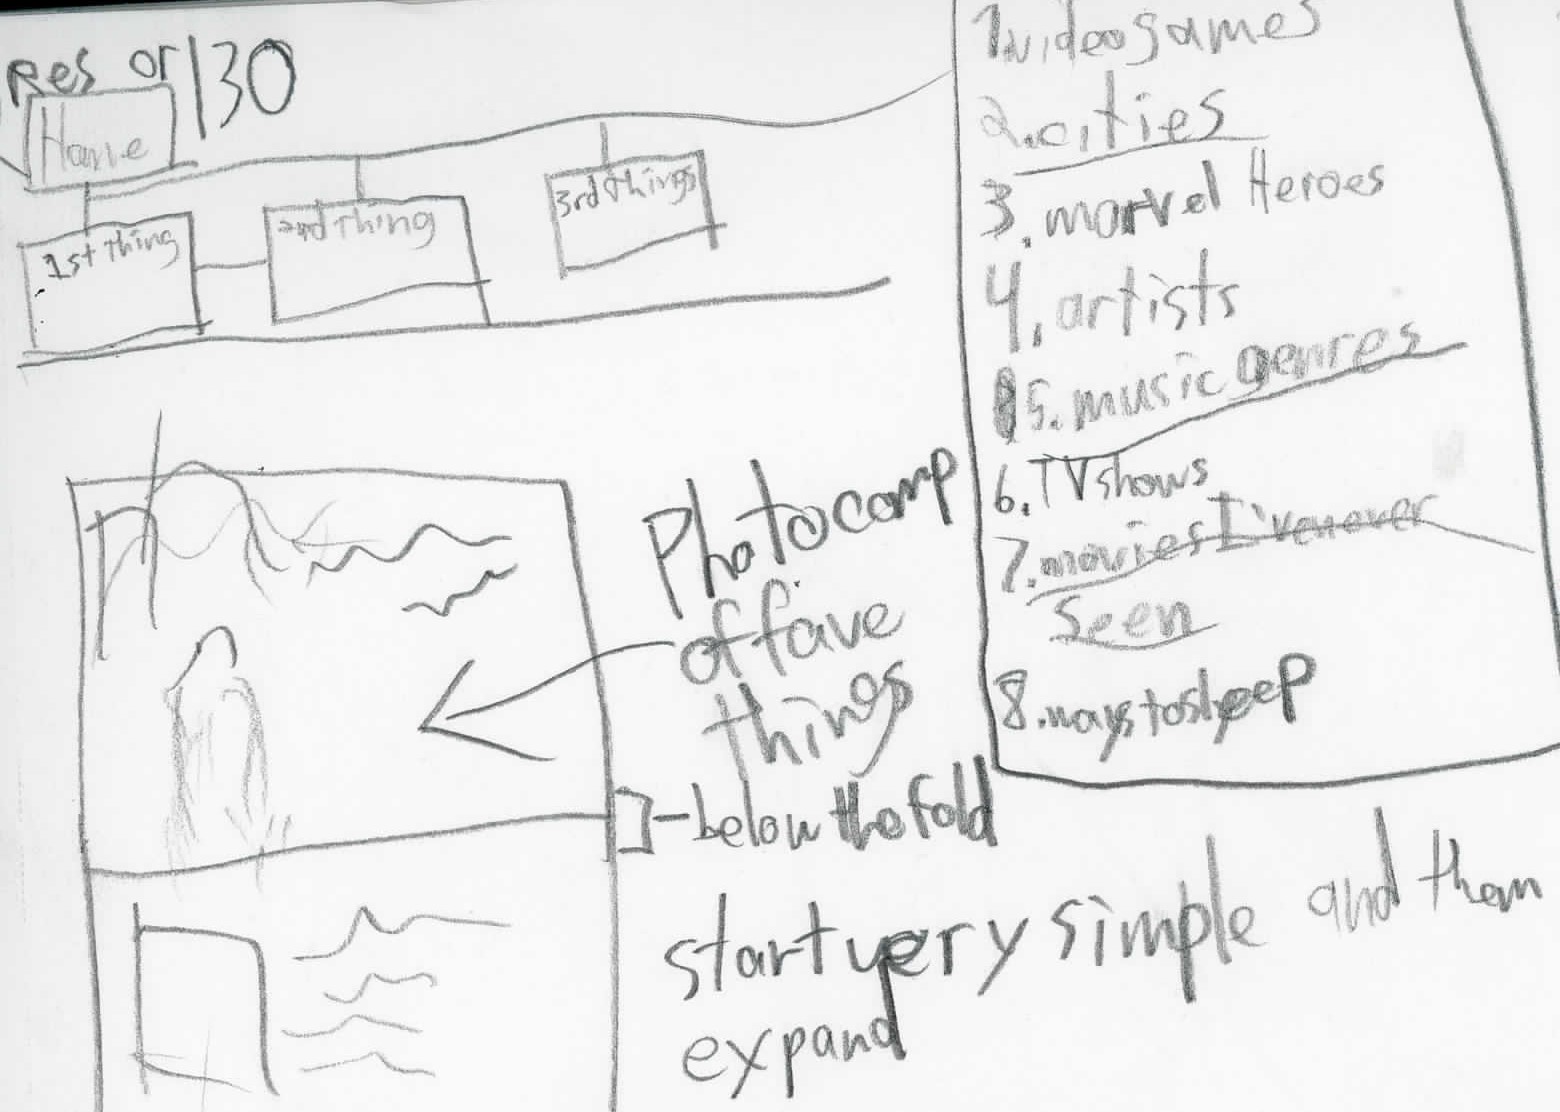 Res or 130
Home
1st thing
2nd thing
3rd things
1. videogames
2. cities
3. marvel Heroes
4. artists
5. music genres
6. TV shows
7. movies I've never
seen
8. ways to sleep
Photocomp
of fave
things
- below the fold
start very simple and then
expand